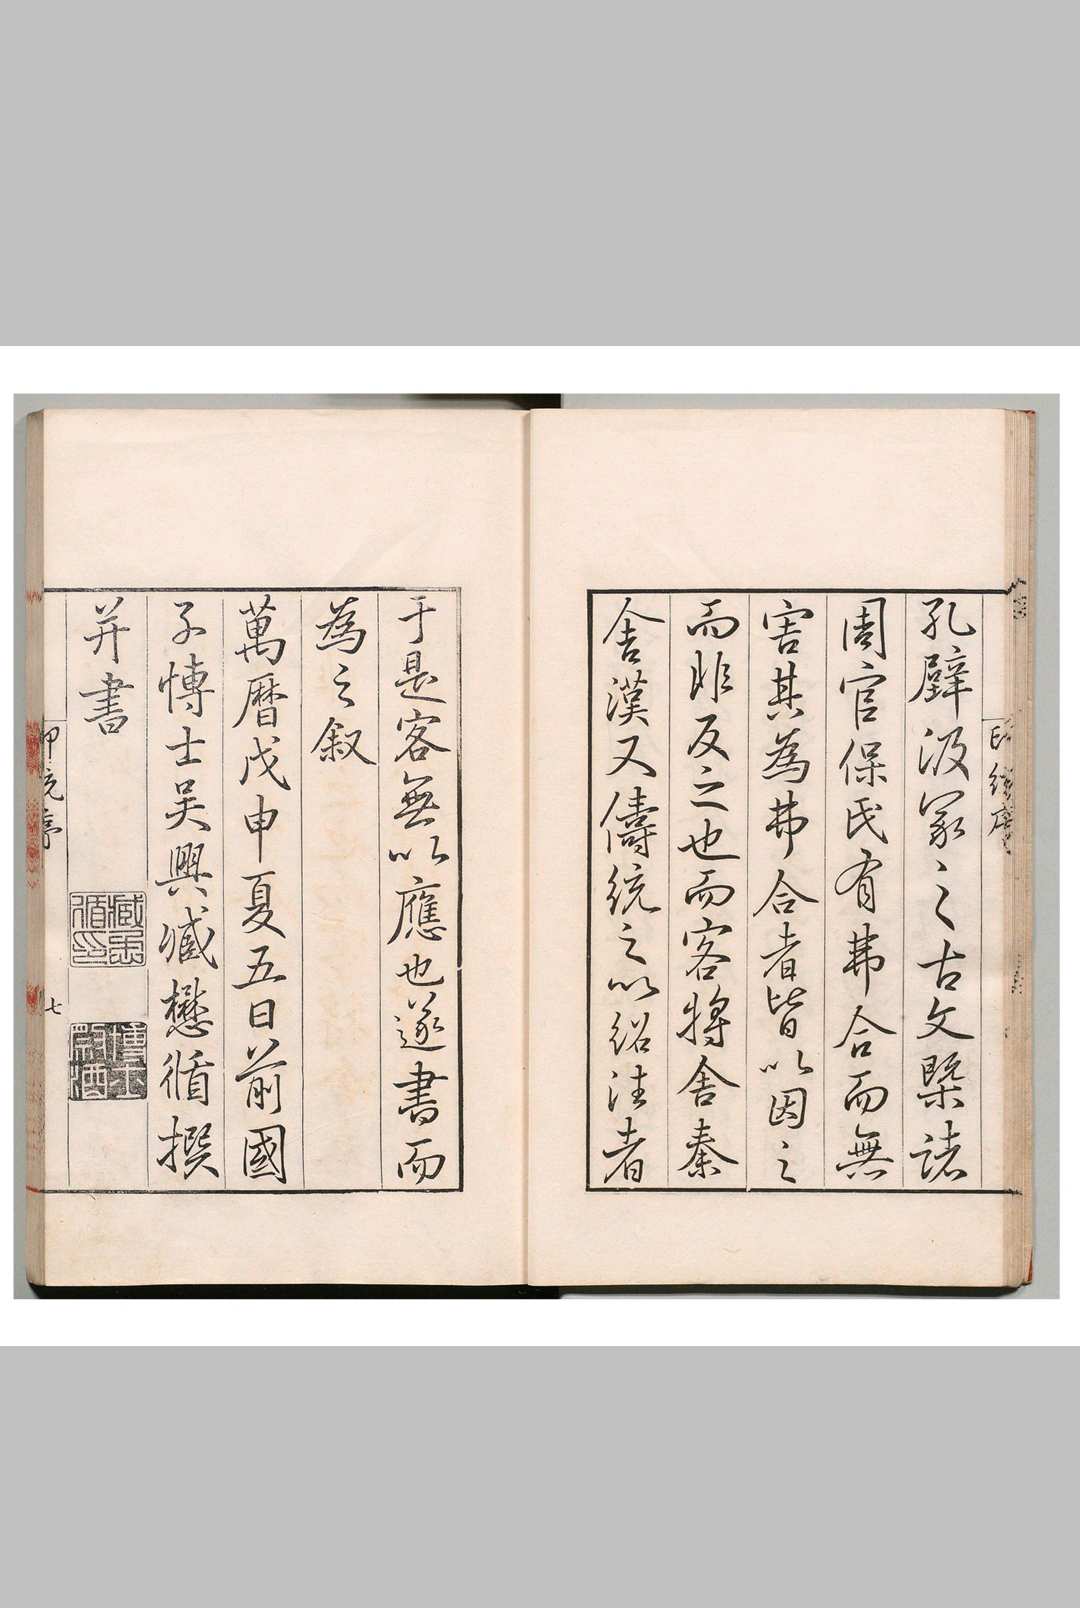 孔壁汲冢之古文槩諸
周官保氏有弗合而無
害其為弗合者皆以因之
而非反之也而客將舍秦
舍漢又儔統之以紹法者
于是客無以應也遂書而
為之叙
萬曆戊申夏五日前國
子博士吳興臧懋循撰
并書
臧懋循印
博士祭酒
印統序
七